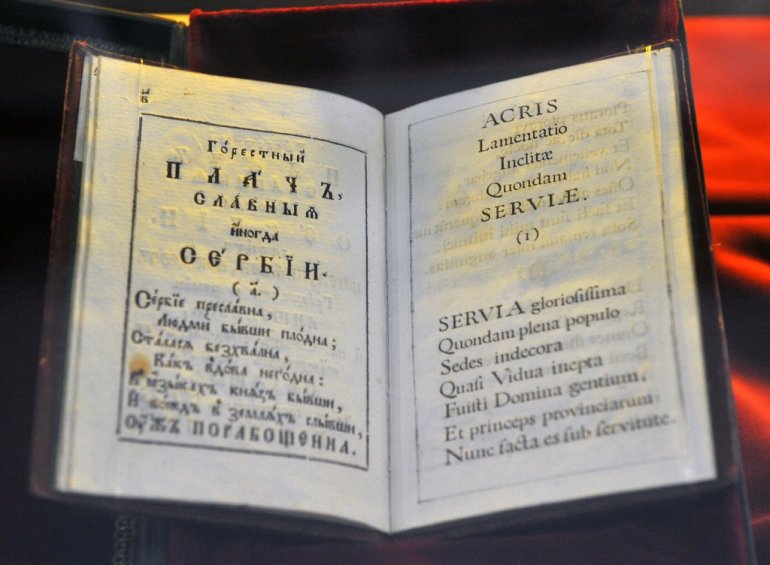 Го́рестный
ПЛА́ЧЪ,
СЛА́ВНЫѦ
И҆ногда
СЕ́РБЇИ.
(а҃.)
Се́рбїе пресла́вна,
Людми̑ бы́вши пло́дна;
Ста́лася безхва́лна,
Ꙗ҆́кѡ вдова̀ него́дна:
В̾ ꙗ҆зы́кахъ кнѧ́зь бы́вши,
И҆ во́ждь в̾ земля́хъ слы́вши,
Оу҆́жъ ПОРАБОЩЕННА.
ACRIS
Lamentatio
Inclitæ
Quondam
SERVIÆ.
(1)
SERVIA glorioſiſſima
Quondam plena populo
Sedes indecora
Quaſi Vidua inepta
Fuiſti Domina gentium,
Et princeps provinciarum
Nunc facta es ſub ſervitute.